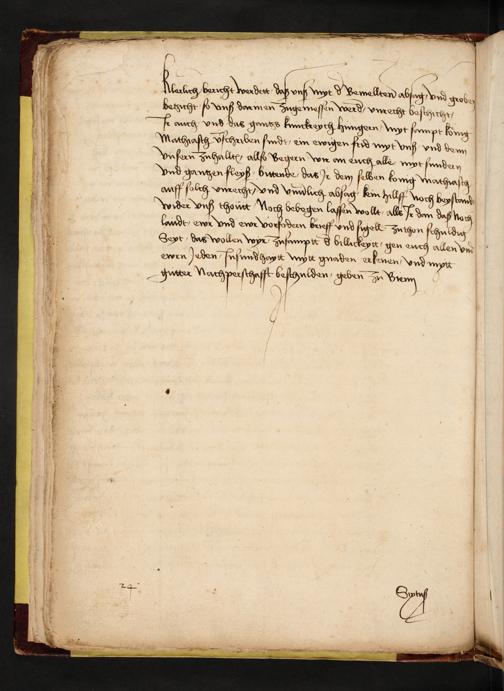 klerlich bericht werdett das vns myt d bemelten absag vnd grober
bezicht so vns darinnen zugemessen werd vnrecht beschicht
Ir auch vnd das gantz kunckreych hungern myt sampt konig
Mathiasch vschriben sindt ein ewigen frid myt vns vnd den
vnsern zuhaltn also begern wir an euch alle myt sundern
vnd gantzen fleyß bittende das Ir dem selben konig Mathiasch
auff solch vnrecht vnd absag kein hilff noch beystand
wider vns thoütt Noch bewegen lassen wollt als Ir dan das Noch
laudt ewr vnd ewr vorfodern brieff vnd sigell zuthon schuldig
Seyt das wollen wyr zusampt d billickeytt gen euch allen vnd
ewrn Jeden Insundheytt mytt gnaden erkenen vnd mytt
gutter Nachperschafft beschulden geben zu Wienn
24
Sixtuß